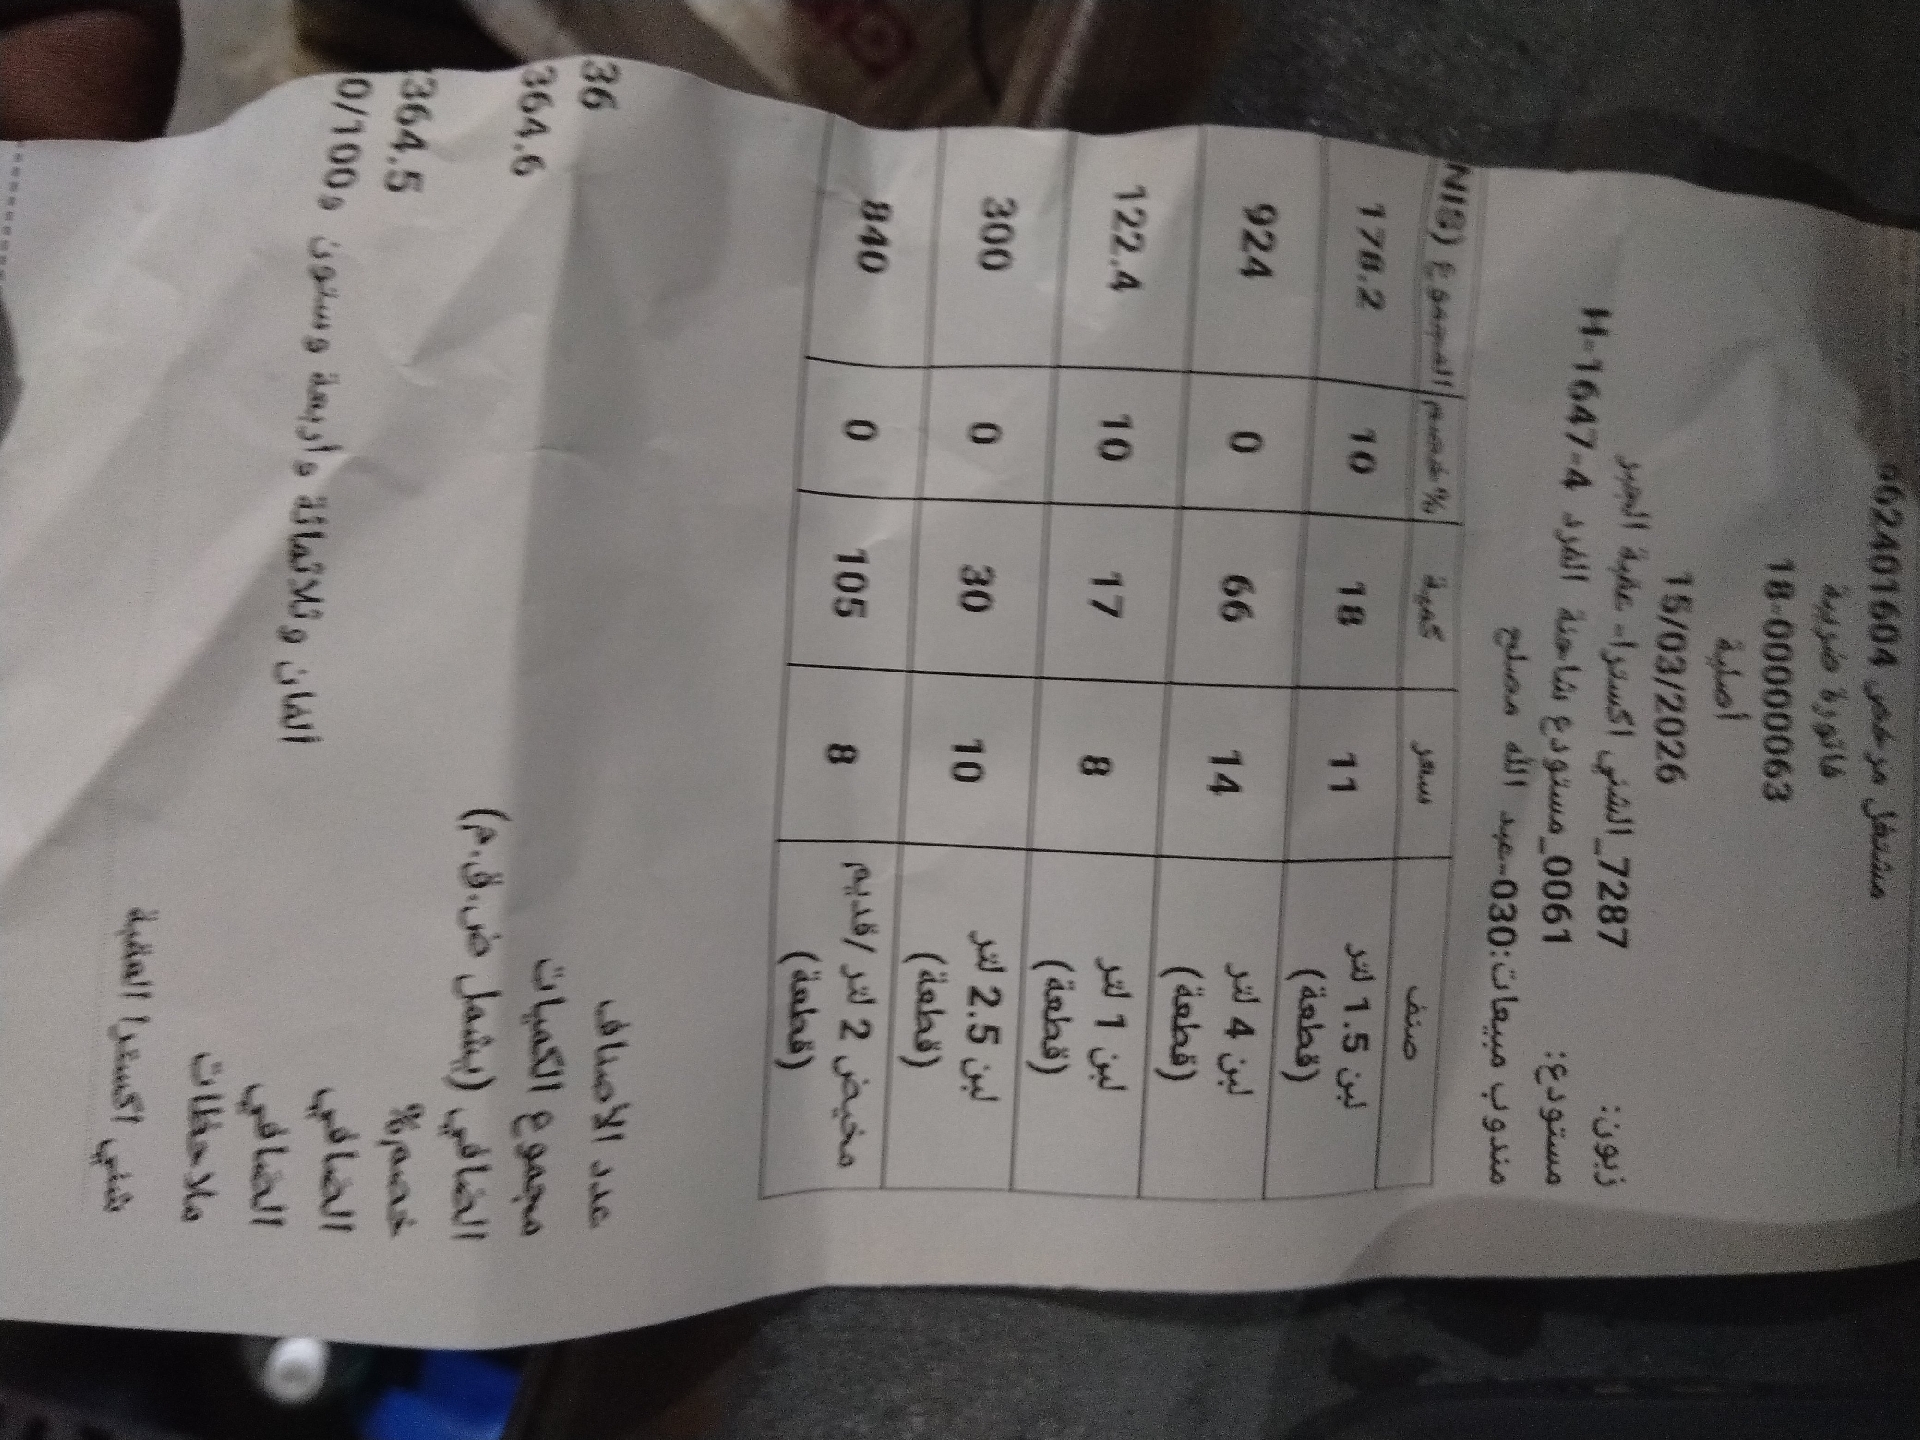 مشتغل مرخص 562401604
فاتورة ضريبية
18-00000063
أصلية
15/03/2026
زبون: 7287_الشني اكسترا- عقبة الجبر
مستودع: 0061_مستودع شاحنة الفرد H-1647-4
مندوب مبيعات:030-عبد الله مصلح
صنف سعر كمية خصم% المجموع (NIS
لبن 1.5 لتر (قطعة) 11 18 10 178.2
لبن 4 لتر (قطعة) 14 66 0 924
لبن 1 لتر (قطعة) 8 17 10 122.4
لبن 2.5 لتر (قطعة) 10 30 0 300
مخيض 2 لتر /قديم (قطعة) 8 105 0 840
عدد الأصناف
مجموع الكميات 36
الصافي (يشمل ض.ق.م) 364.6
خصم%
الصافي 364.5
الصافي الفان وثلاثمائة وأربعة وستون و0/100
ملاحظات
شني اكسترا العقبة